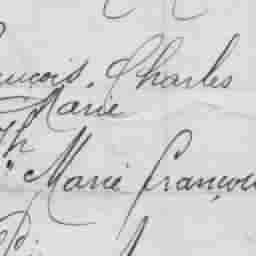 ançois, Charles
Marie
Th
" Marie françoi